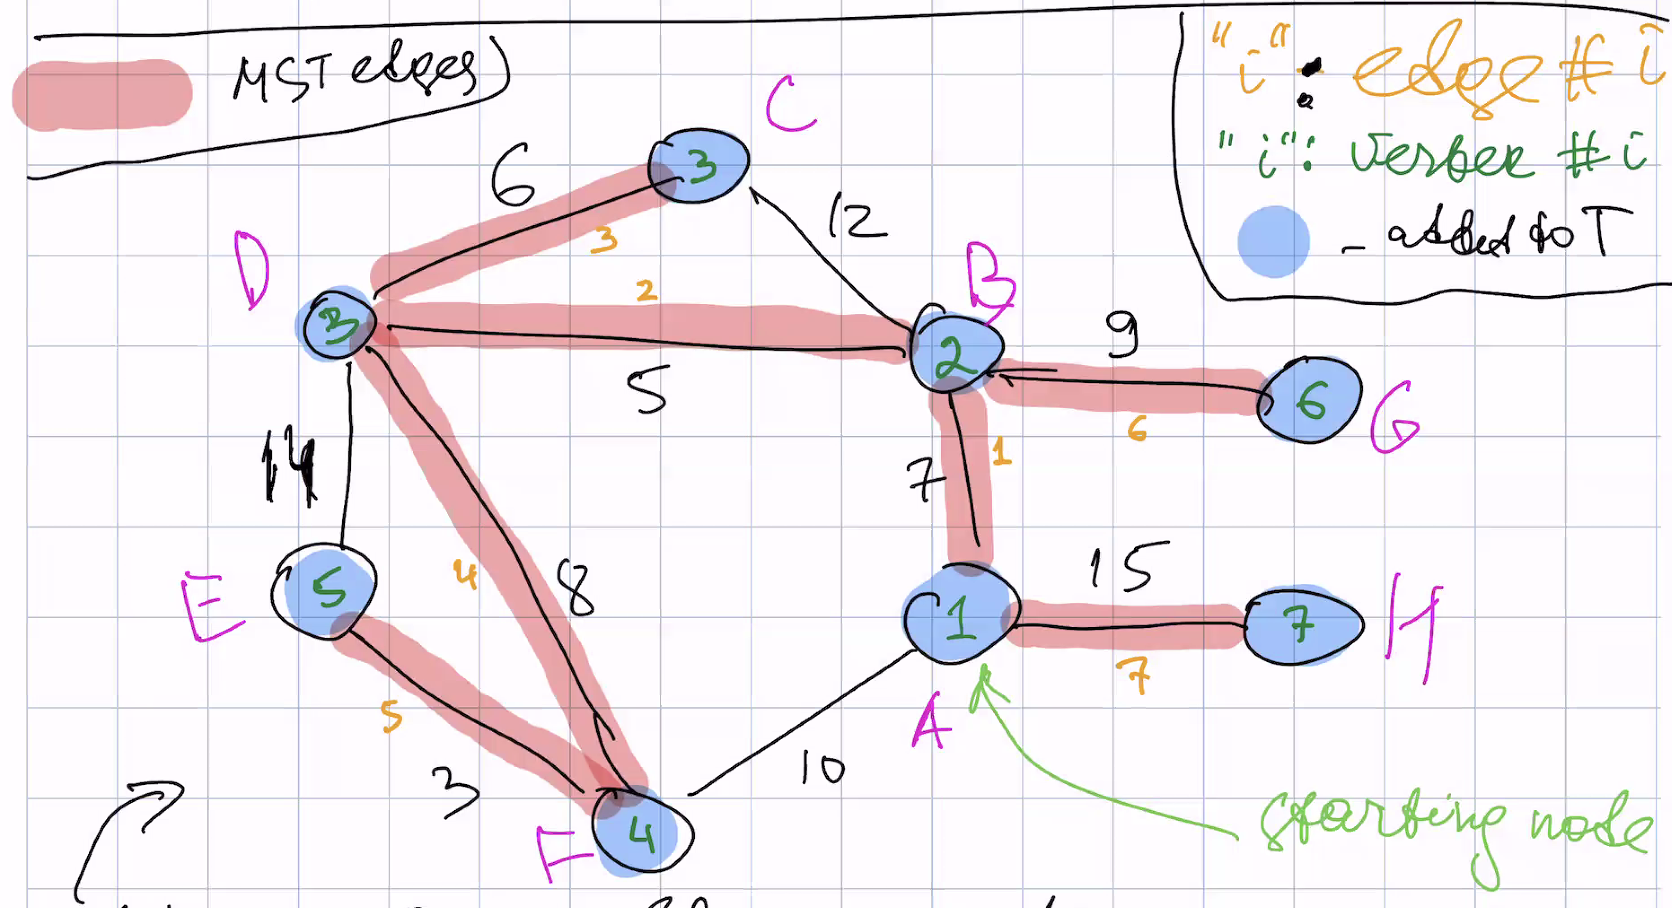 MST edges)
"i": edge # i
"i": vertex # i
- added to T
C
3
6
3
12
D
3
2
5
B
2
9
6
6
G
14
7
1
E
5
4
8
1
15
7
7
H
A
5
3
10
F
4
starting node